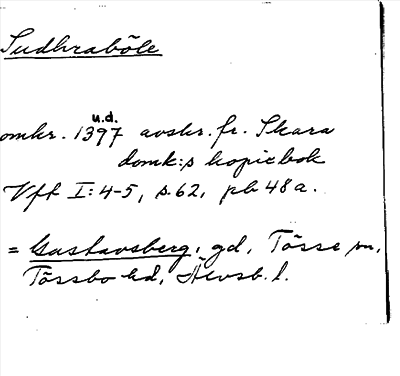 Sudhraböle
u.d.
omkr. 1397 avskr. fr. Skara
domk:s kopiebok
Vff I:4-5, s. 62, pb 48a.
= Gustavsberg, gd, Tösse sn,
Tössbo hd, Älvsb. l.